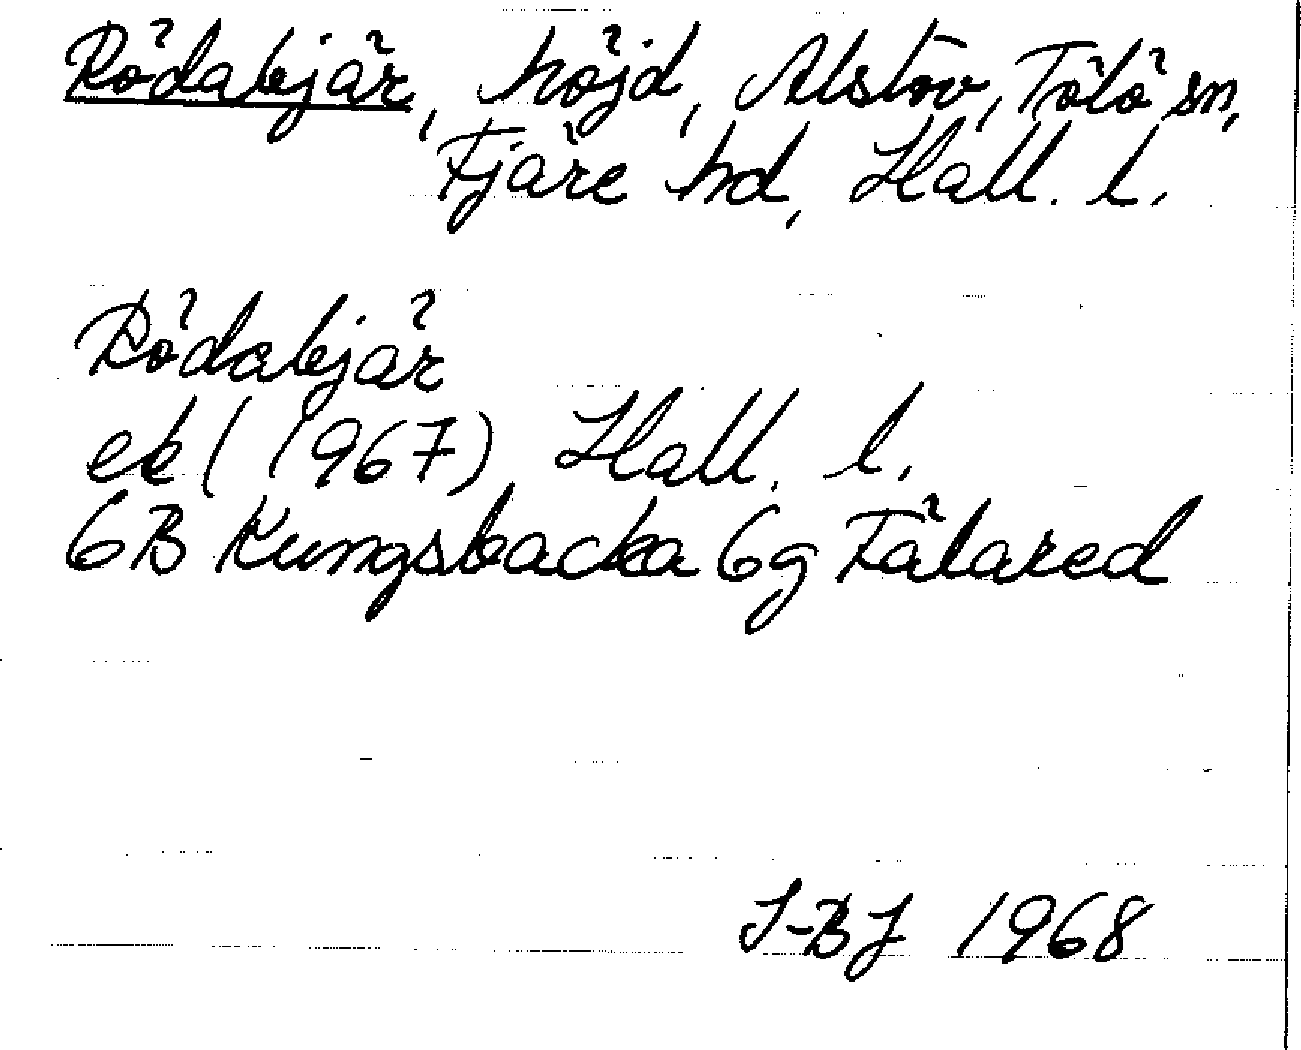 Rödabjär, höjd, Alstov, Tölö sn,
Fjäre hd, Hall. l.
Rödabjär
ek (1967) Hall. l.
6B Kungsbacka 6g Fälared
I-BJ 1968